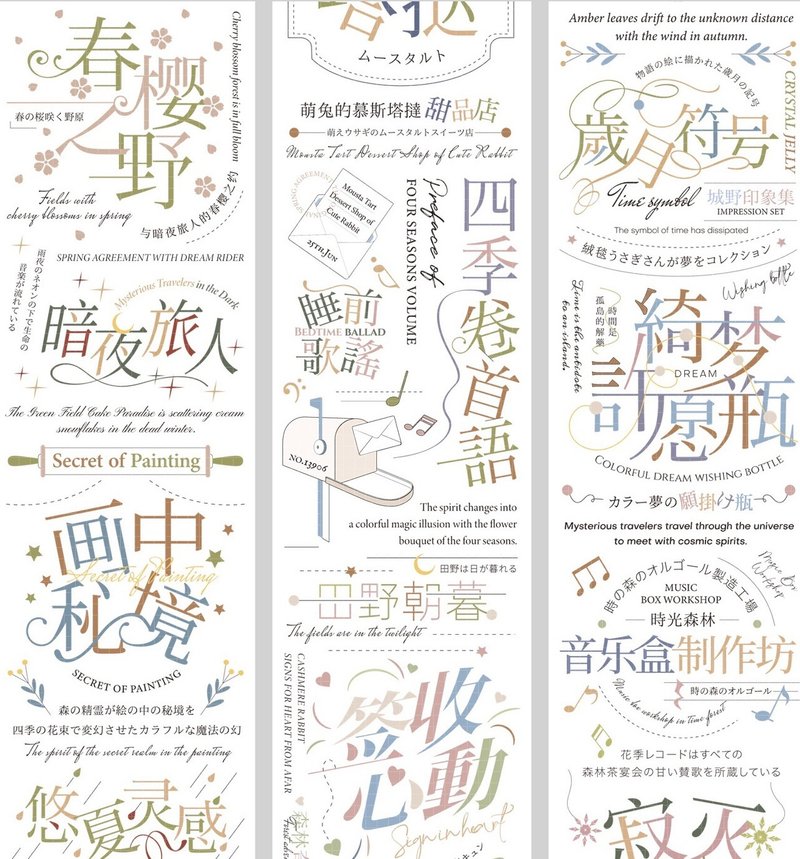 春
樱
之
野
Cherry blossom forest is in full bloom
春の桜咲く野原
Fields with
cherry blossoms in spring
与暗夜旅人的春樱之约
SPRING AGREEMENT WITH DREAM RIDER
雨夜のネオンの下で生命の
音楽が流れている
Mysterious Travelers in the Dark
暗夜旅人
The Green Field Cake Paradise is scattering cream
snowflakes in the dead winter.
Secret of Painting
画中
Secret of Painting
秘境
SECRET OF PAINTING
森の精霊が絵の中の秘境を
四季の花束で変幻させたカラフルな魔法の幻
The spirit of the secret realm in the painting
悠夏灵感
ムースタルト
萌兔的慕斯塔撻 甜品店
萌えウサギのムースタルトスイーツ店
Mousta Tart Dessert Shop of Cute Rabbit
SPRING AGREEMENT
Mousta Tart
Dessert Shop of
Cute Rabbit
25TH JUN
Preface of
FOUR SEASONS VOLUME
四季卷首語
睡前
BEDTIME BALLAD
歌謠
NO.13906
The spirit changes into
a colorful magic illusion with the flower
bouquet of the four seasons.
田野は日が暮れる
田野朝暮
The fields are in the twilight
CASHMERE RABBIT
SIGNS FOR HEART FROM AFAR
签收
心動
Sign in heart
Amber leaves drift to the unknown distance
with the wind in autumn.
物語の絵に描かれた歳月の記号
CRYSTAL JELLY
歲月符号
Time symbol
城野印象集
IMPRESSION SET
The symbol of time has dissipated
絨毯うさぎさんが夢をコレクション
Wishing bottle
Time is the antidote
to an island.
時間是
孤島的解藥
綺梦
DREAM
許愿瓶
COLORFUL DREAM WISHING BOTTLE
カラー夢の願掛け瓶
Mysterious travelers travel through the universe
to meet with cosmic spirits.
時の森のオルゴール製造工場
Magic Box
Workshop
MUSIC
BOX WORKSHOP
時光森林
音乐盒制作坊
時の森のオルゴール
Music box workshop in time forest
花季レコードはすべての
森林茶宴会の甘い賛歌を所蔵している
寂灭